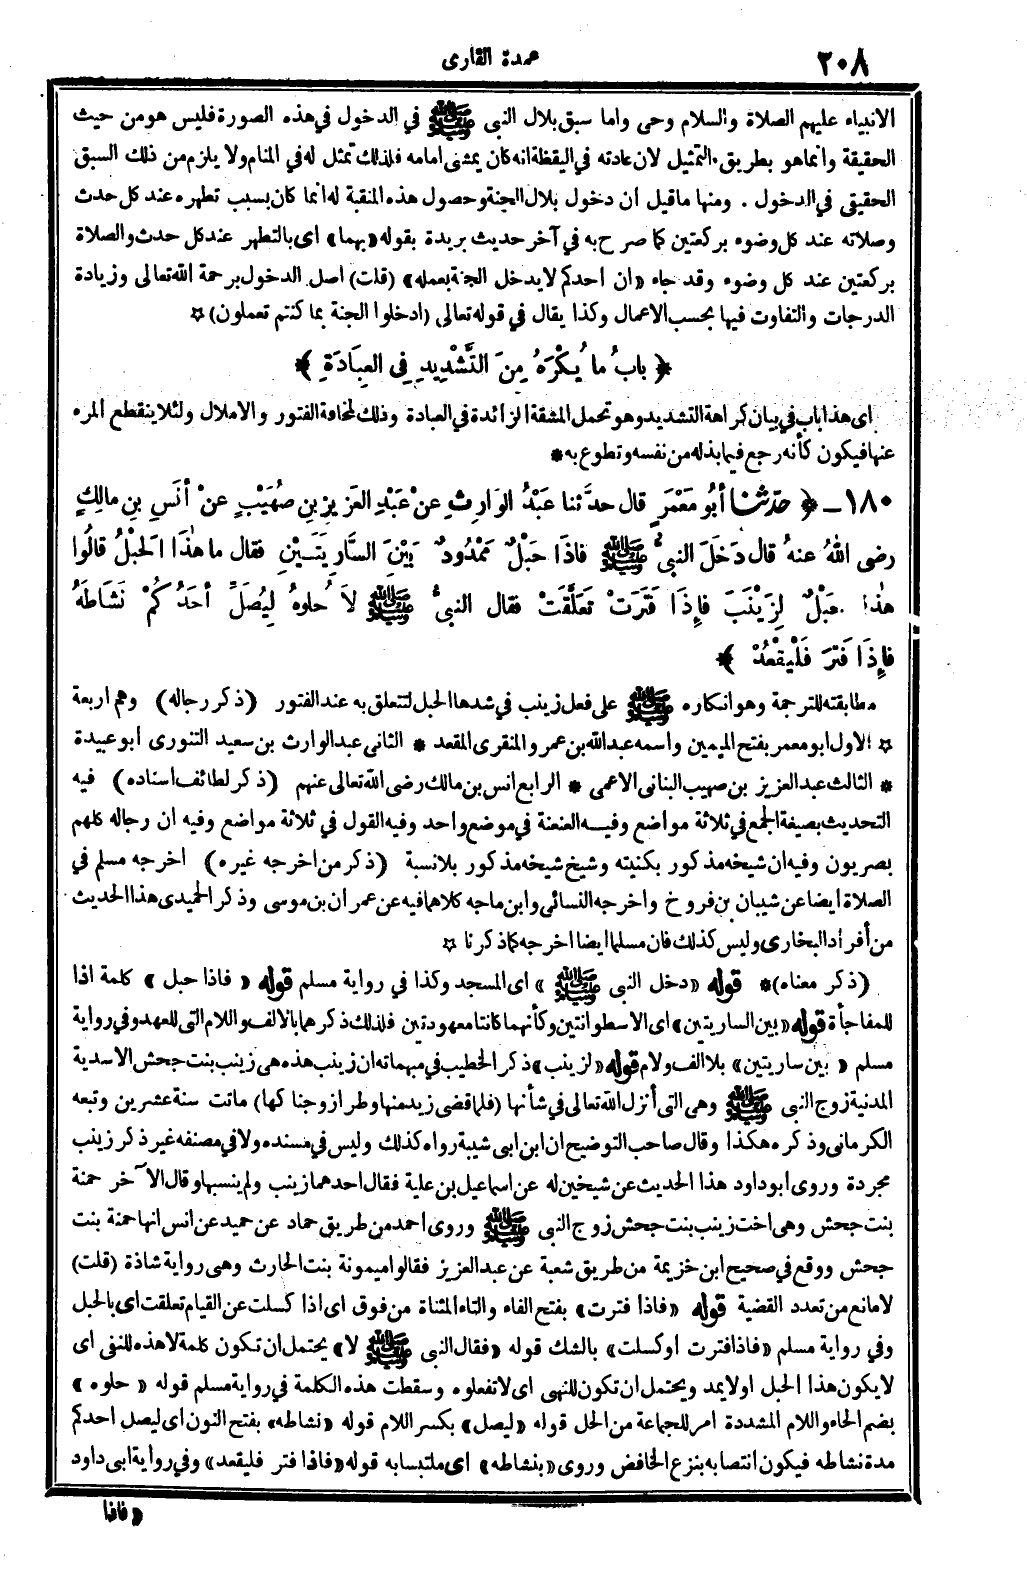 ٢٠٨
عمدة القارى
الانبياء عليهم الصلاة والسلام وحى واما سبق بلال النبى ﷺ في الدخول في هذه الصورة فليس هو من حيث
الحقيقة وانما هو بطريق التمثيل لان عادته في اليقظة انه كان يمشى امامه فلذلك تمثل له في المنام ولا يلزم من ذلك السبق
الحقيقى في الدخول . ومنها ما قيل ان دخول بلال الجنة وحصول هذه المنقبة له انما كان بسبب تطهره عند كل حدث
وصلاته عند كل وضوء بركعتين كما صرح به في آخر حديث بريدة بقوله «بهما» اى بالتطهر عند كل حدث والصلاة
بركعتين عند كل وضوء وقد جاء «ان احدكم لا يدخل الجنة بعمله» (قلت) اصل الدخول برحمة الله تعالى وزيادة
الدرجات والتفاوت فيها بحسب الاعمال وكذا يقال في قوله تعالى (ادخلوا الجنة بما كنتم تعملون) ☆
﴿ بابُ ما يُكْرَهُ مِنَ التَّشْدِيدِ فِى العِبَادَةِ ﴾
اى هذا باب في بيان كراهة التشديد وهو تحمل المشقة الزائدة في العبادة وذلك لمخافة الفتور والاملال ولئلا ينقطع المرء
عنها فيكون كأنه رجع فيما بذله من نفسه وتطوع به *
١٨٠ ـ ﴿ حدّثنا أبُو مَعْمَرٍ قال حدَّثنا عبْدُ الوَارِثِ عنْ عَبْدِ العَزِيزِ بنِ صُهَيْبٍ عنْ أنَسِ بنِ مالِكٍ
رضى اللهُ عنهُ قال دَخَلَ النبىُّ ﷺ فاذَا حَبْلٌ مَمْدُودٌ بَيْنَ السَّارِيَتَيْنِ فقال ما هٰذَا الحَبْلُ قالُوا
هٰذا حَبْلٌ لِزَيْنَبَ فإِذَا فَتَرَتْ تَعَلَّقَتْ فقال النبىُّ ﷺ لاَ حُلوهُ لِيُصَلِّ أحَدُكُمْ نَشَاطَهُ
فإِذَا فَتَرَ فَلْيَقْعُدْ ﴾
مطابقته للترجمة وهو انكاره ﷺ على فعل زينب في شدها الحبل لتتعلق به عند الفتور (ذكر رجاله) وهم اربعة
☆ الاول ابو معمر بفتح الميمين واسمه عبدالله بن عمرو المنقرى المقعد * الثانى عبد الوارث بن سعيد التنورى ابو عبيدة
* الثالث عبد العزيز بن صهيب البنانى الاعمى * الرابع انس بن مالك رضى الله تعالى عنهم (ذكر لطائف اسناده) فيه
التحديث بصيغة الجمع في ثلاثة مواضع وفيه العنعنة في موضع واحد وفيه القول في ثلاثة مواضع وفيه ان رجاله كلهم
بصريون وفيه ان شيخه مذكور بكنيته وشيخ شيخه مذكور بلا نسبة (ذكر من اخرجه غيره) اخرجه مسلم في
الصلاة ايضا عن شيبان بن فروخ واخرجه النسائى وابن ماجه كلاهما فيه عن عمران بن موسى وذكر الحميدى هذا الحديث
من أفراد البخارى وليس كذلك فان مسلما ايضا اخرجه كما ذكرنا ☆
(ذكر معناه) * قوله «دخل النبى ﷺ» اى المسجد وكذا في رواية مسلم قوله «فاذا حبل» كلمة اذا
للمفاجأة قوله «بين الساريتين» اى الاسطوانتين وكأنهما كانتا معهودتين فلذلك ذكرهما بالالف واللام التى للعهد وفي رواية
مسلم «بين ساريتين» بلا الف ولام قوله «لزينب» ذكر الخطيب في مبهماته ان زينب هذه هى زينب بنت جحش الاسدية
المدنية زوج النبى ﷺ وهى التى أنزل الله تعالى في شأنها (فلما قضى زيد منها وطرا زوجناكها) ماتت سنة عشرين وتبعه
الكرمانى وذكره هكذا وقال صاحب التوضيح ان ابن ابى شيبة رواه كذلك وليس في مسنده ولا في مصنفه غير ذكر زينب
مجردة وروى ابو داود هذا الحديث عن شيخين له عن اسماعيل بن علية فقال احدهما زينب ولم ينسبها وقال الآخر حمنة
بنت جحش وهى اخت زينب بنت جحش زوج النبى ﷺ وروى احمد من طريق حماد عن حميد عن انس انها حمنة بنت
جحش ووقع في صحيح ابن خزيمة من طريق شعبة عن عبد العزيز فقالوا ميمونة بنت الحارث وهى رواية شاذة (قلت)
لا مانع من تعدد القضية قوله «فاذا فترت» بفتح الفاء والتاء المثناة من فوق اى اذا كسلت عن القيام تعلقت اى بالحبل
وفي رواية مسلم «فاذا فترت او كسلت» بالشك قوله «فقال النبى ﷺ لا» يحتمل ان تكون كلمة لا هذه للنفى اى
لا يكون هذا الحبل او لا يمد ويحتمل ان تكون للنهى اى لا تفعلوه وسقطت هذه الكلمة في رواية مسلم قوله «حلوه»
بضم الحاء واللام المشددة امر للجماعة من الحل قوله «ليصل» بكسر اللام قوله «نشاطه» بفتح النون اى ليصل احدكم
مدة نشاطه فيكون انتصابه بنزع الخافض وروى «بنشاطه» اى ملتبسا به قوله «فاذا فتر فليقعد» وفي رواية ابى داود
«فاذا